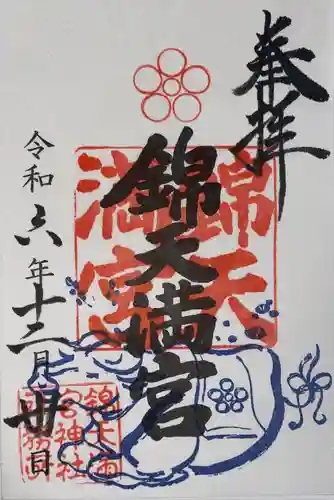 奉拝
錦天満宮
錦天
満宮
令和六年十二月廿日
錦天満
宮神社